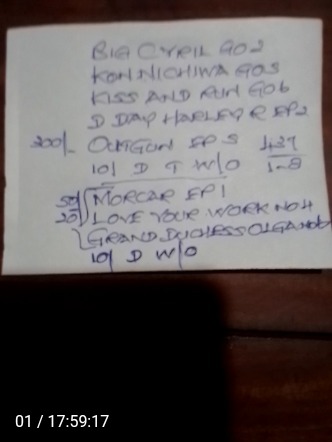 BIG CYRIL GO2
KONNICHIWA GO5
KISS AND RUN GO6
D DAY HARLEY R EP2
200/- OUTGUN EP 5
10/ D T W/O
1-8
50/ MORCAR EP1
20/ LOVE YOUR WORK NO4
GRAND DUCHESS OLGA NO6
10/ D W/O
01 / 17:59:17